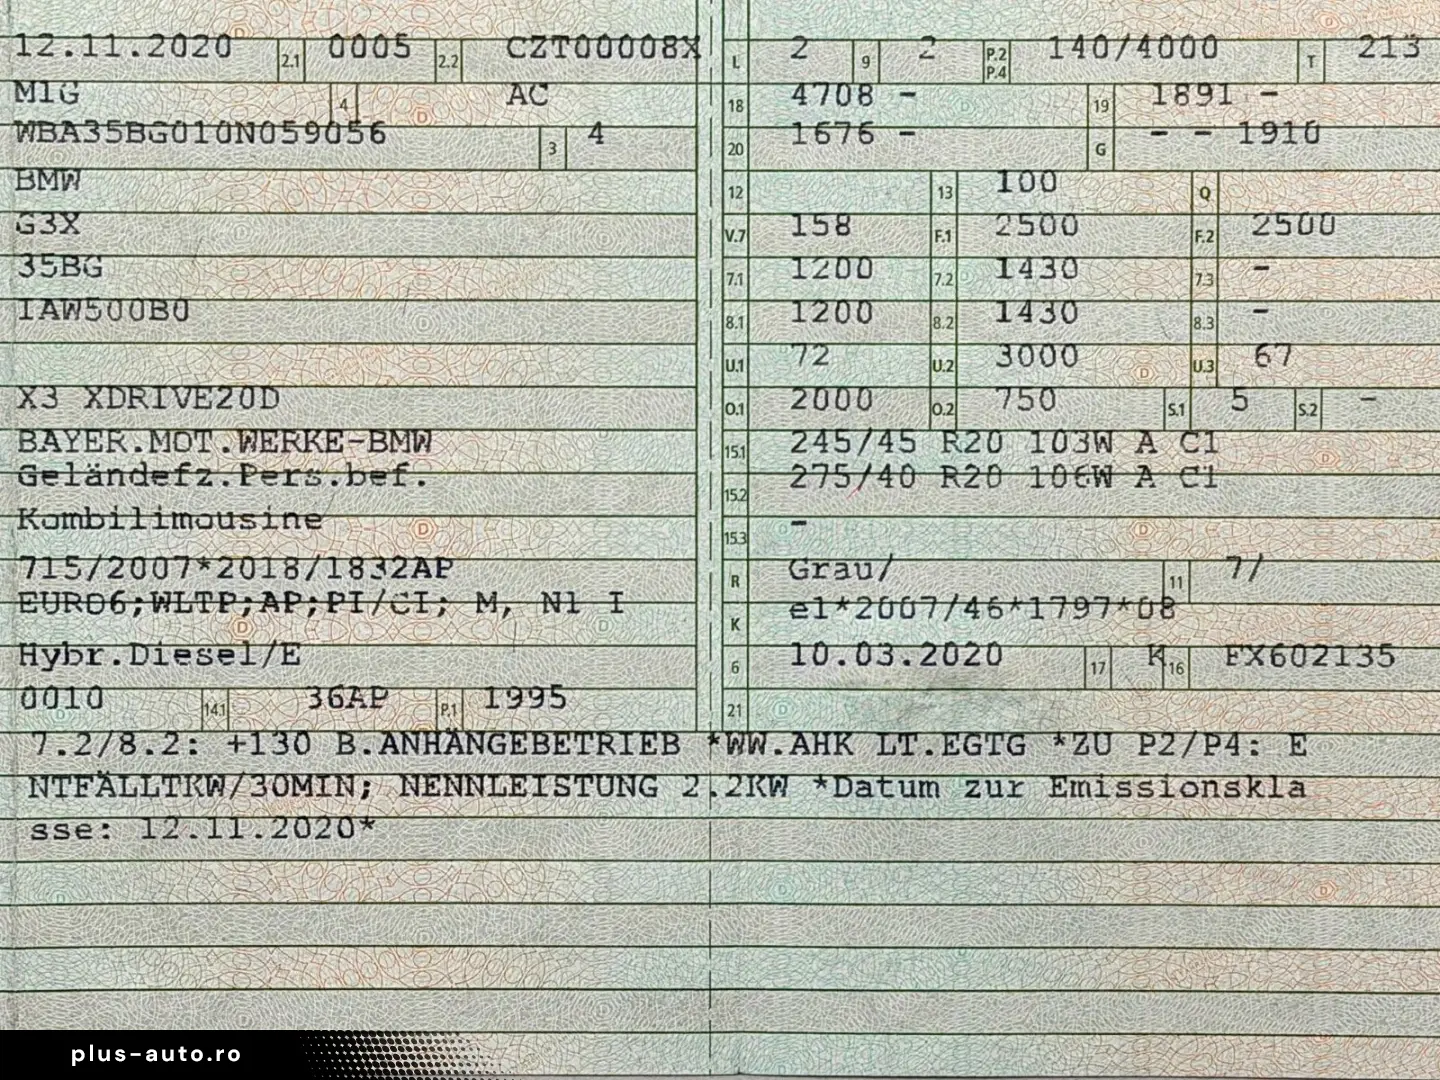 12.11.2020 2.1 0005 2.2 CZT00008X
M1G 4 AC
WBA35BG010N059056 3 4
BMW
G3X
35BG
1AW500B0
X3 XDRIVE20D
BAYER.MOT.WERKE-BMW
Geländefz.Pers.bef.
Kombilimousine
715/2007*2018/1832AP
EURO6;WLTP;AP;PI/CI; M, N1 I
Hybr.Diesel/E
0010 14.1 36AP P.1 1995
L 2 9 2 P.2 P.4 140/4000 T 213
18 4708 - 19 1891 -
20 1676 - G - - 1910
12 13 100 Q
V.7 158 F.1 2500 F.2 2500
7.1 1200 7.2 1430 7.3 -
8.1 1200 8.2 1430 8.3 -
U.1 72 U.2 3000 U.3 67
O.1 2000 O.2 750 S.1 5 S.2 -
15.1 245/45 R20 103W A C1
15.2 275/40 R20 106W A C1
15.3 -
R Grau/ 11 7/
K e1*2007/46*1797*08
6 10.03.2020 17 K 16 FX602135
21
7.2/8.2: +130 B.ANHÄNGEBETRIEB *WW.AHK LT.EGTG *ZU P2/P4: E
NTFÄLLTKW/30MIN; NENNLEISTUNG 2.2KW *Datum zur Emissionskla
sse: 12.11.2020*
plus-auto.ro